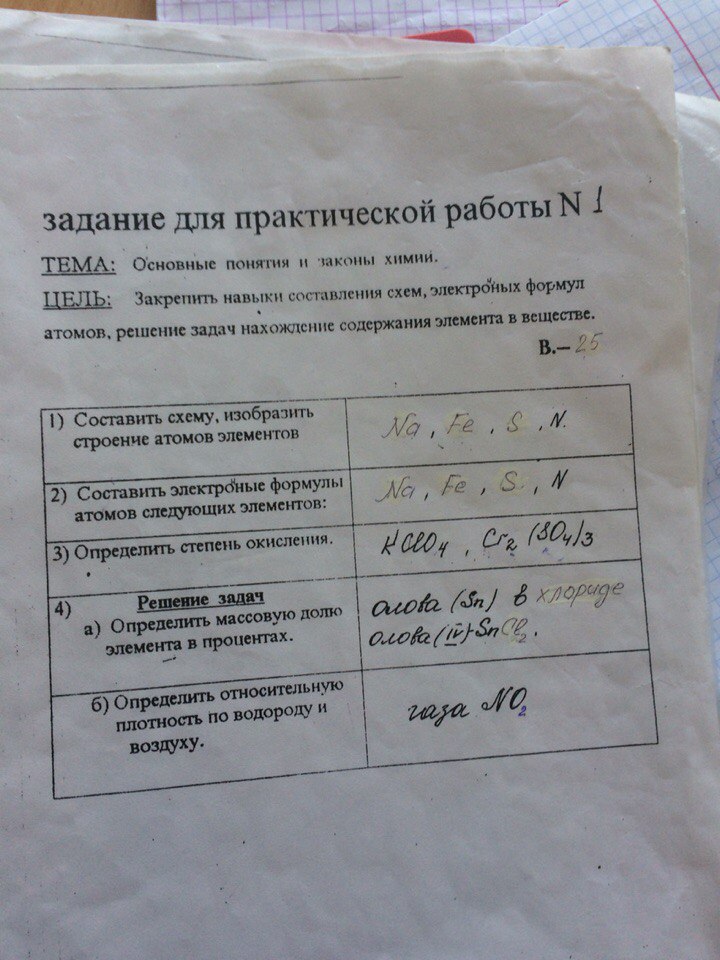 задание для практической работы N 1
ТЕМА: Основные понятия и законы химии.
ЦЕЛЬ: Закрепить навыки составления схем, электроных формул
атомов, решение задач нахождение содержания элемента в веществе.
В.– 25
1) Составить схему, изобразить
строение атомов элементов
Na, Fe, S, N.
2) Составить электроные формулы
атомов следующих элементов:
Na, Fe, S, N
3) Определить степень окисления.
HClO4, Cr2(SO4)3
4) Решение задач
а) Определить массовую долю
элемента в процентах.
олова (Sn) в хлориде
олова (IV)-SnCl2.
б) Определить относительную
плотность по водороду и
воздуху.
газа NO2